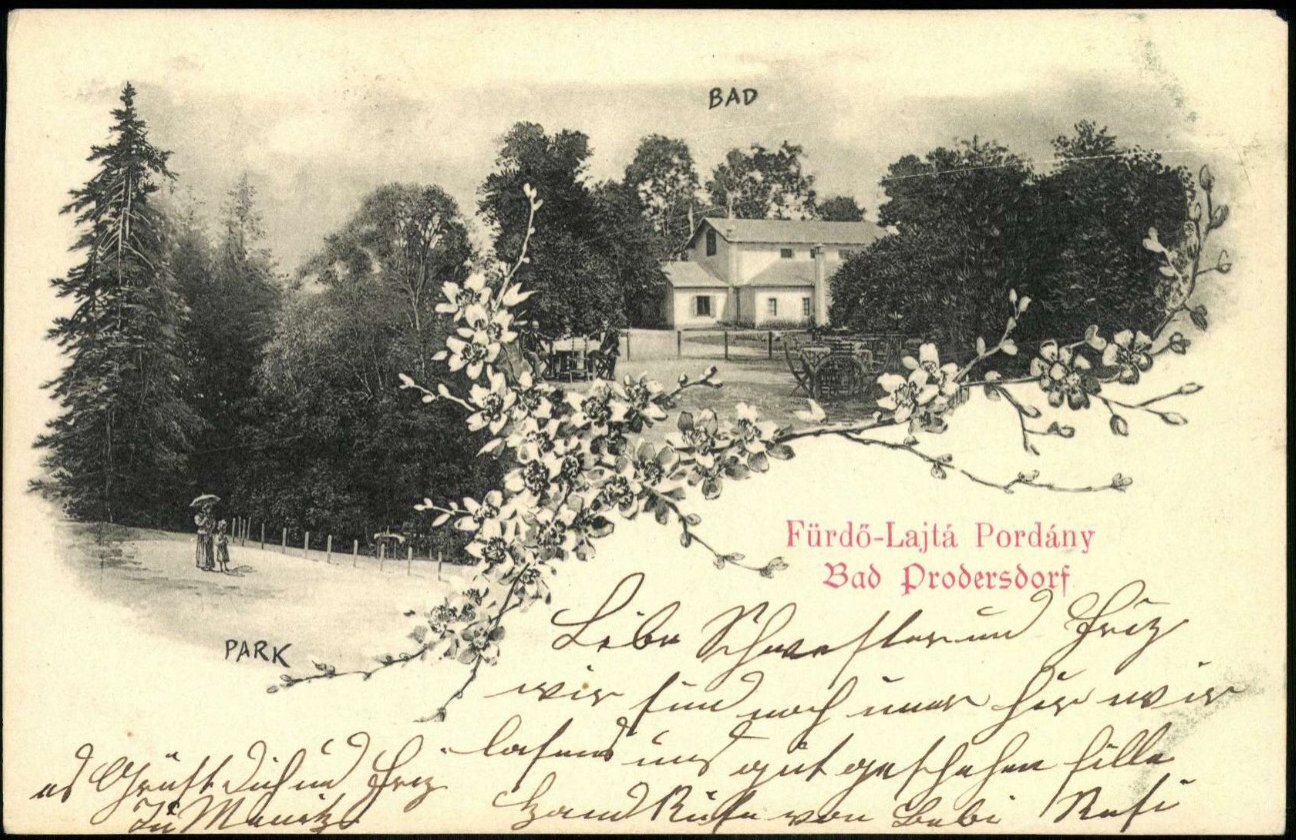 BAD
PARK
Fürdő-Lajtá Pordány
Bad Prodersdorf
Libe Schwester und Friz
wir sind noch imer hir wir
lasens uns gut geschehen fille
Hand Küsse von Bebi Resi
es Grüst Dich und Friz